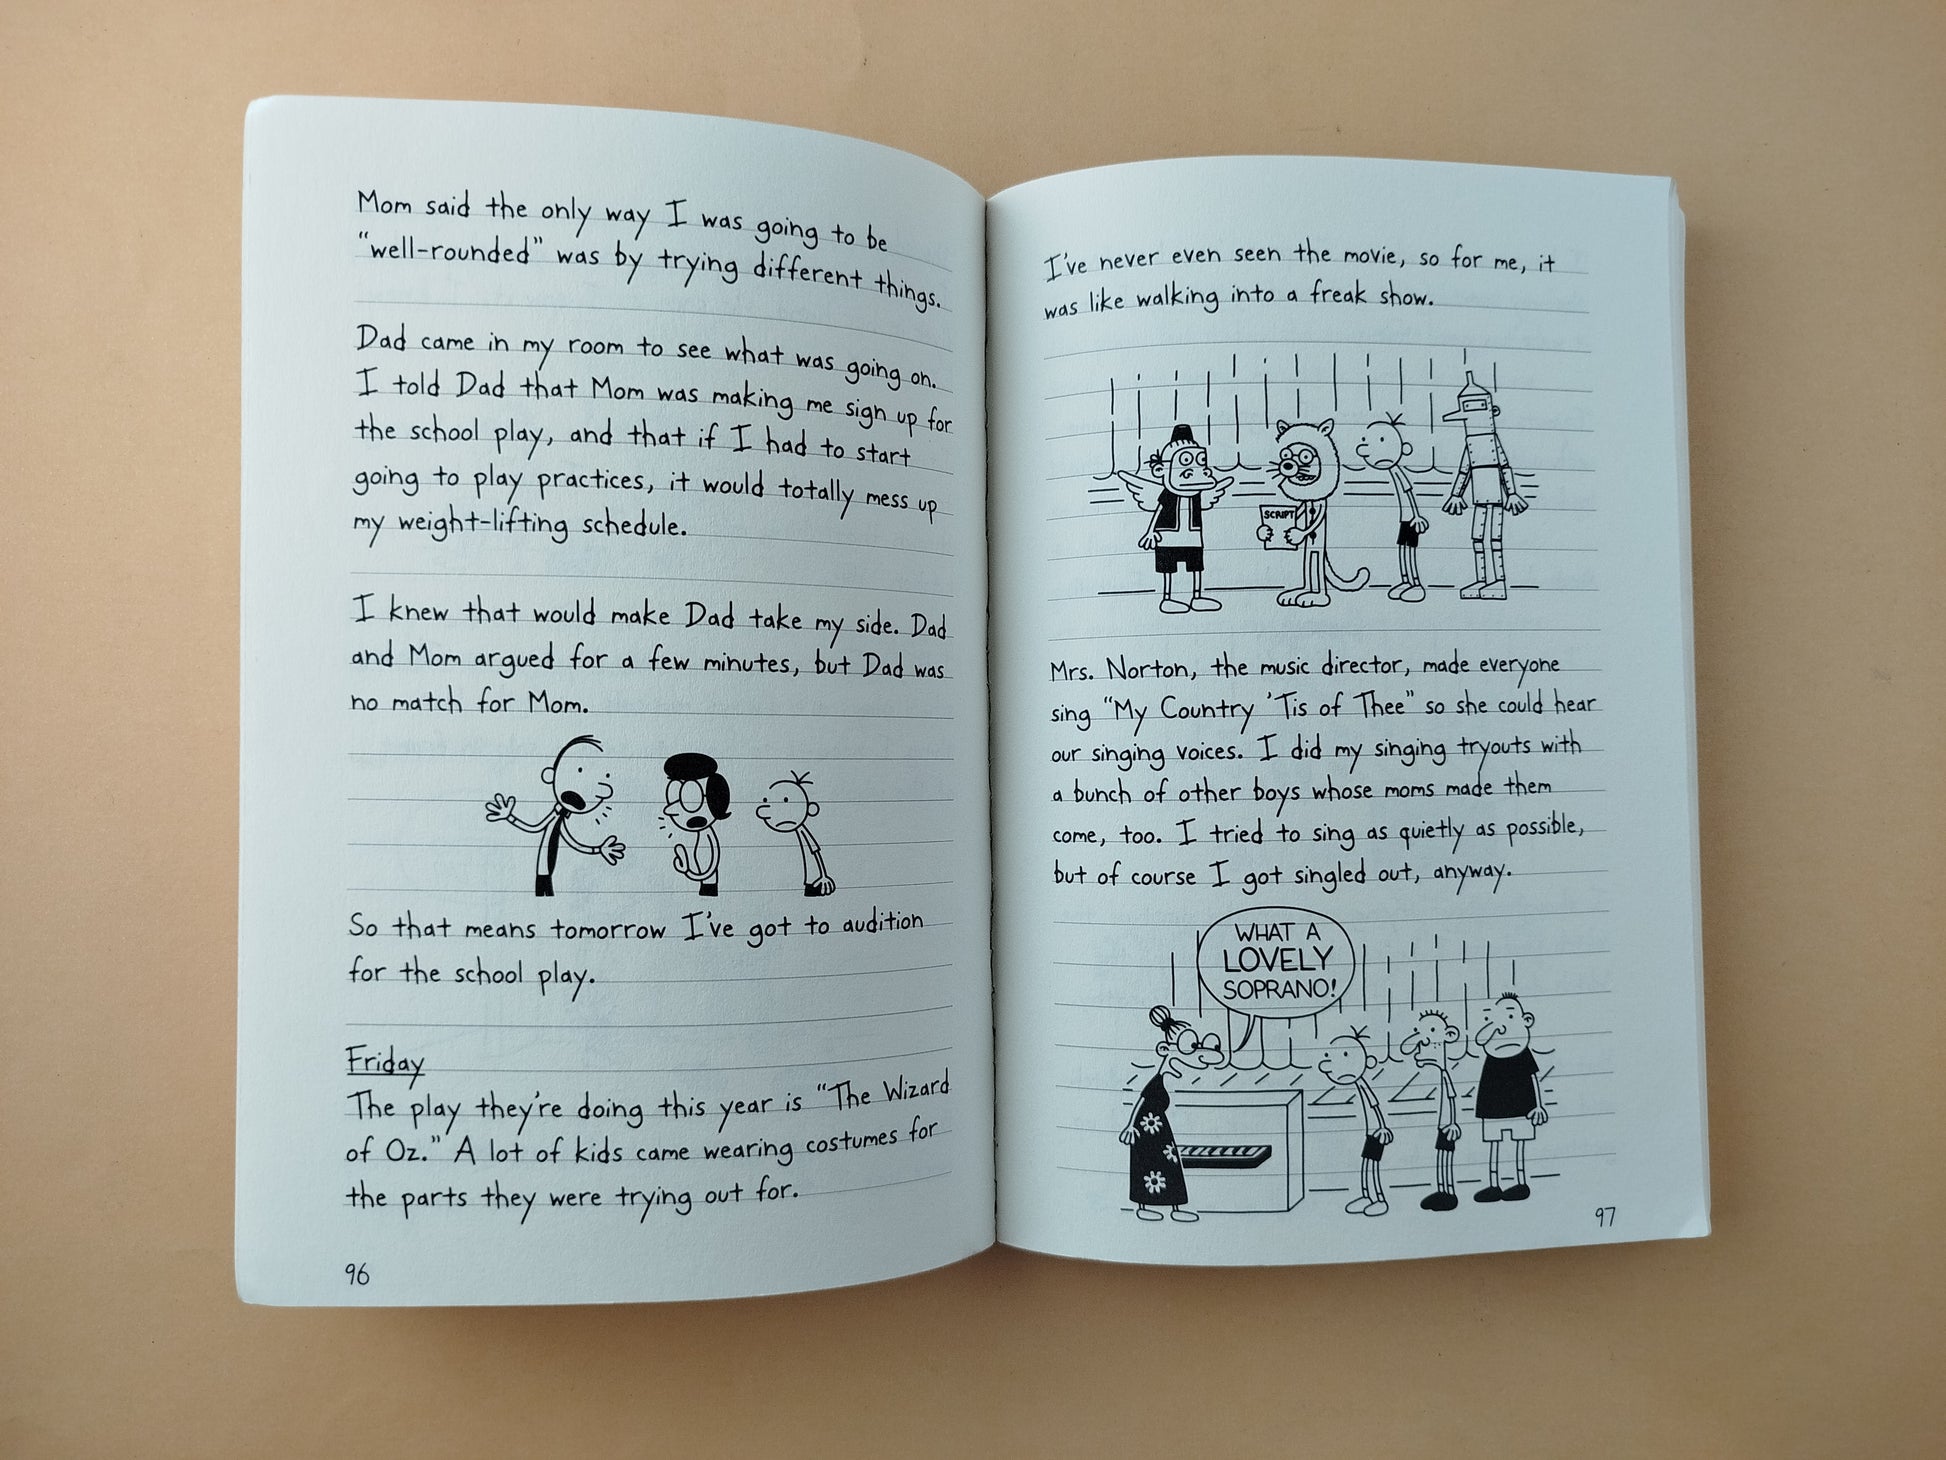 Mom said the only way I was going to be
“well-rounded” was by trying different things.
Dad came in my room to see what was going on.
I told Dad that Mom was making me sign up for
the school play, and that if I had to start
going to play practices, it would totally mess up
my weight-lifting schedule.
I knew that would make Dad take my side. Dad
and Mom argued for a few minutes, but Dad was
no match for Mom.
So that means tomorrow I’ve got to audition
for the school play.
Friday
The play they’re doing this year is “The Wizard
of Oz.” A lot of kids came wearing costumes for
the parts they were trying out for.
96
I’ve never even seen the movie, so for me, it
was like walking into a freak show.
SCRIPT
Mrs. Norton, the music director, made everyone
sing “My Country ’Tis of Thee” so she could hear
our singing voices. I did my singing tryouts with
a bunch of other boys whose moms made them
come, too. I tried to sing as quietly as possible,
but of course I got singled out, anyway.
WHAT A
LOVELY
SOPRANO!
97